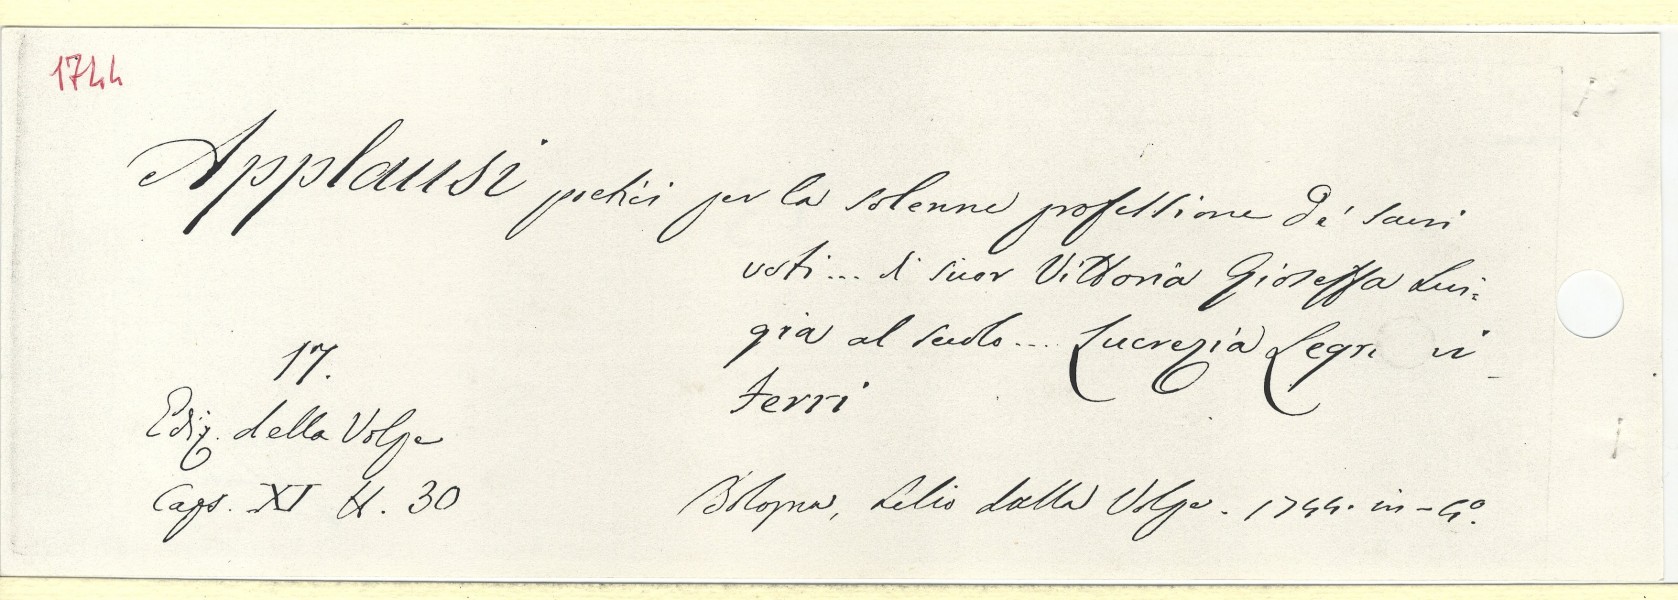 1744
Applausi poetici per la solenne professione de' sacri
voti... di suor Vittoria Gioseffa Lui-
gia al secolo.... Lucrezia Legri vi-
terri
17.
Ediz. della Volpe
Caps. XI N. 30
Bologna, Lelio dalla Volpe. 1744. in-4°.